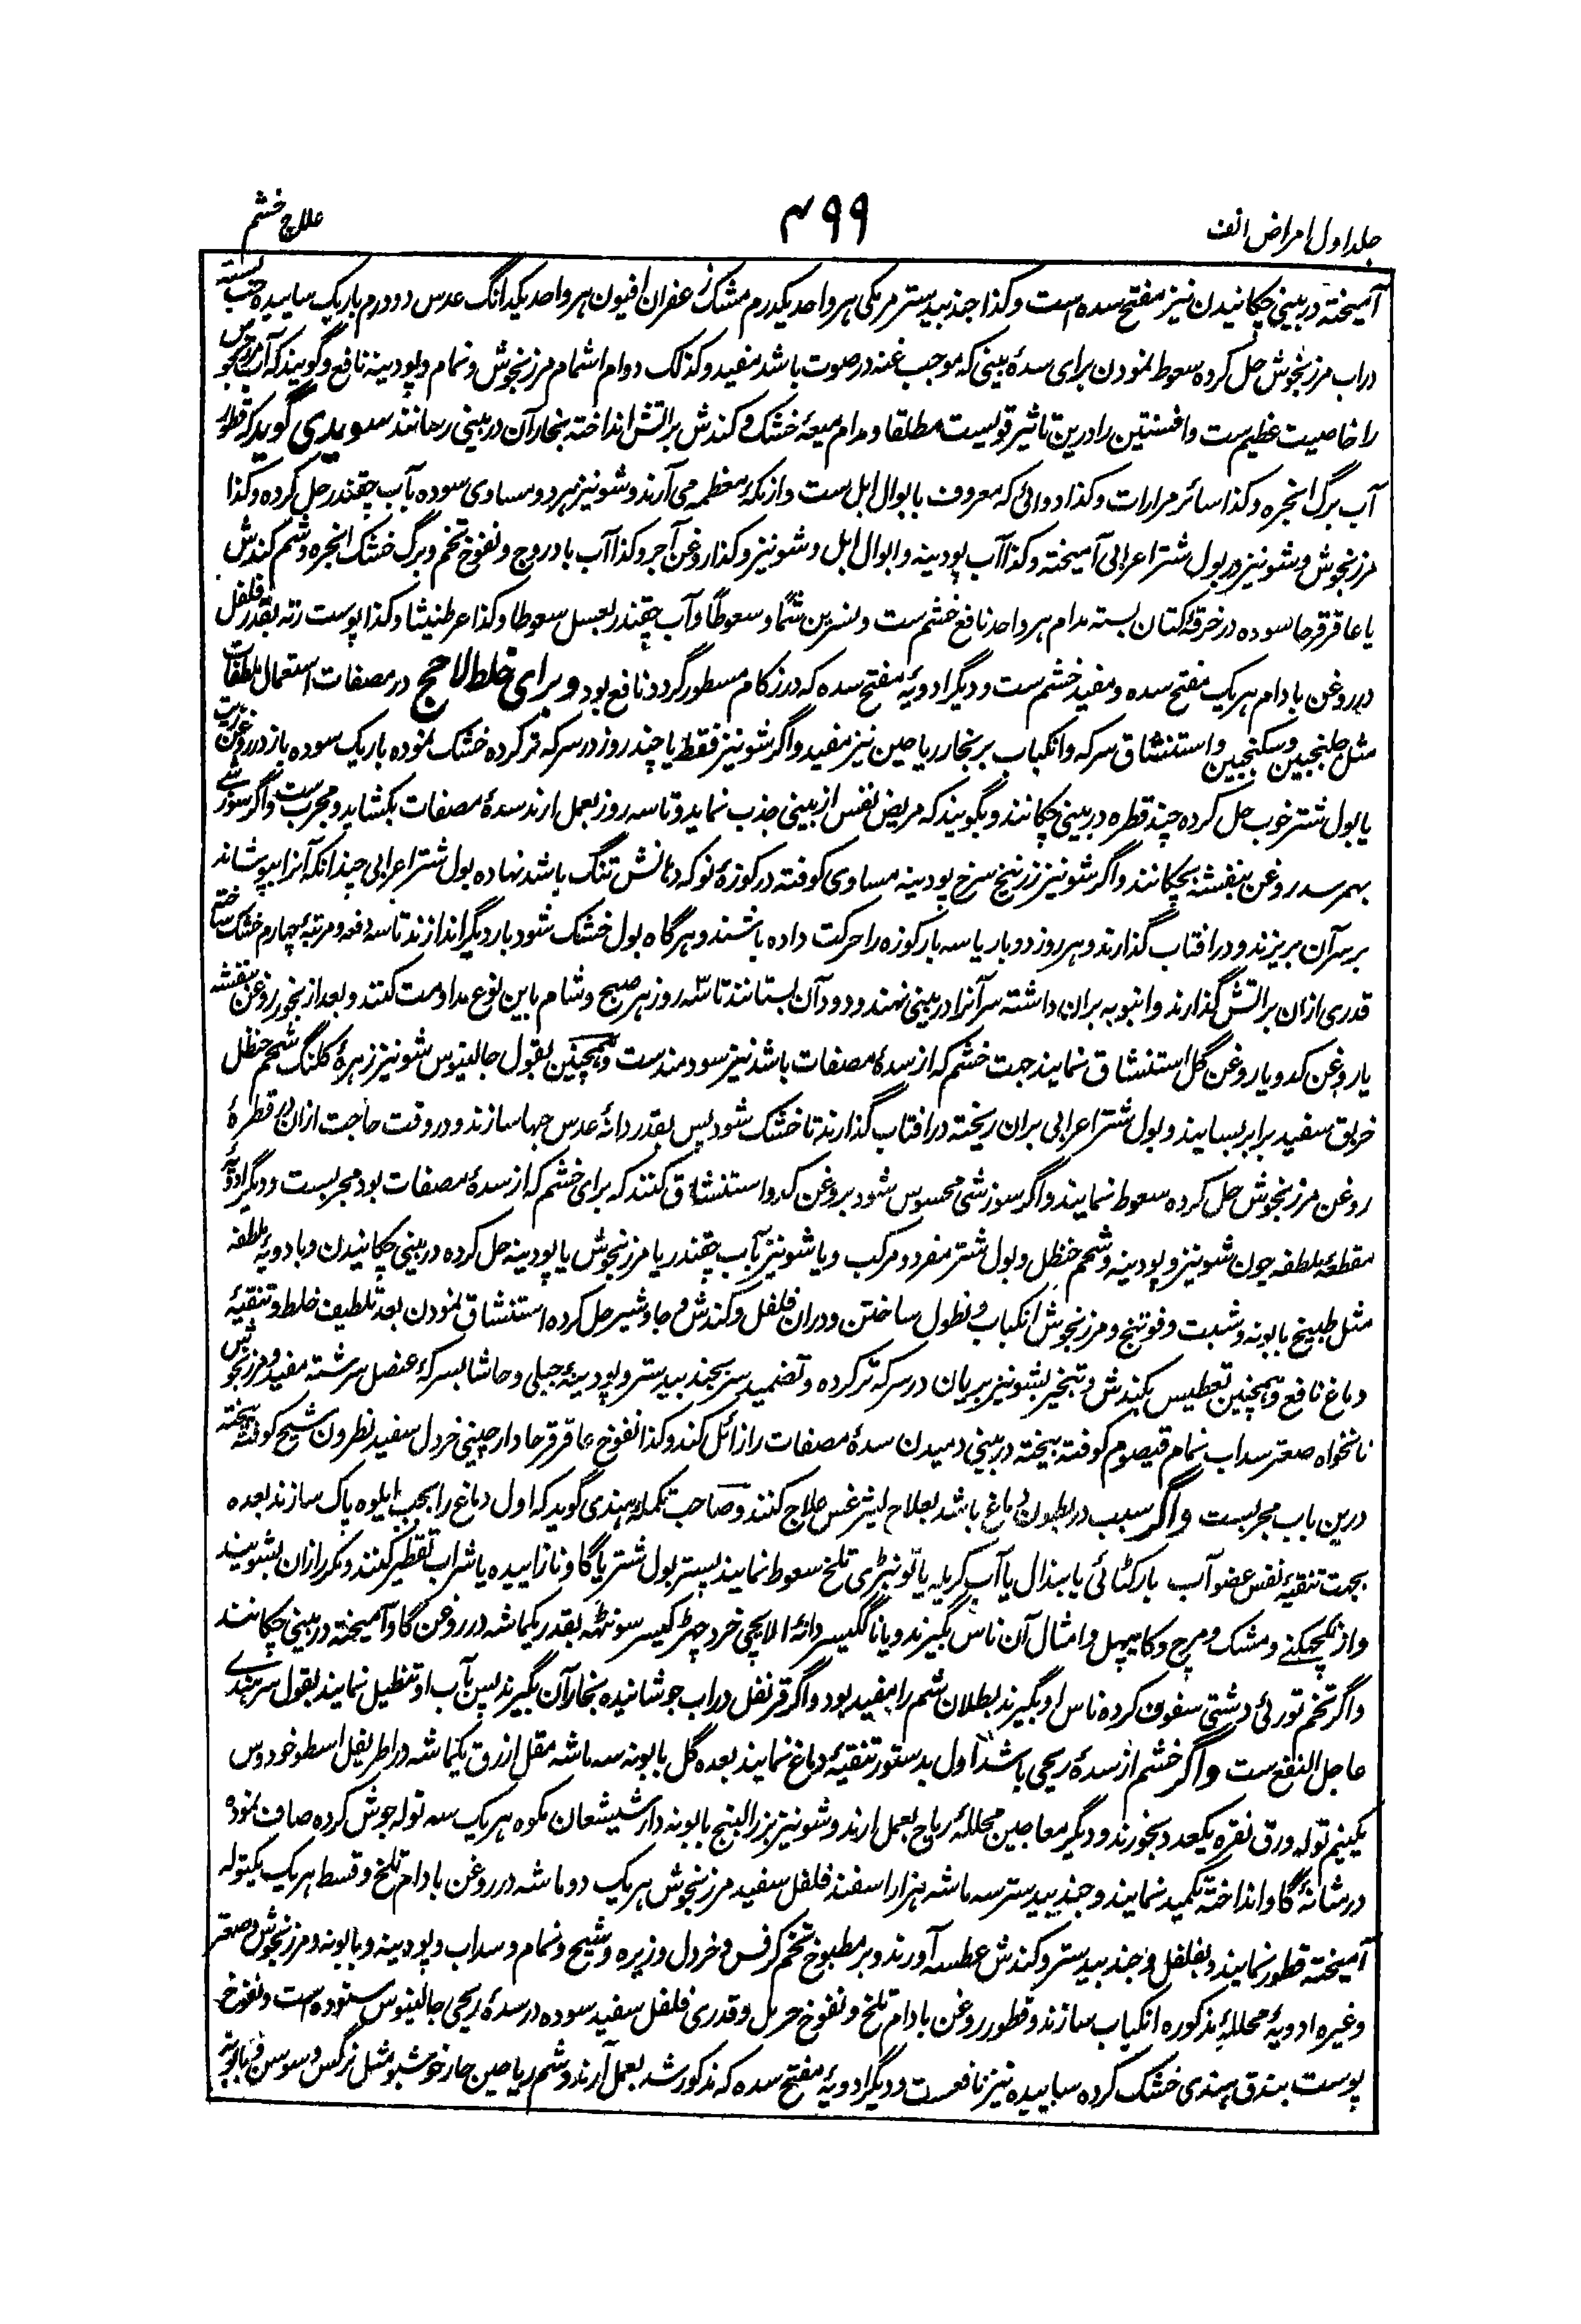 جلد اول امراض انف
۴۹۹
علاج خشم
آمیخته در بینی چکانیدن نیز مفتح سده است وکذا جند بیدستر مر مکی هر واحد یکدرم مشک زعفران افیون هر واحد یکدانگ عدس دو درم باریک ساییده حب بسته
دراب مرزنجوش حل کرده سعوط نمودن برای سدهٔ بینی که موجب غنه در صوت باشد مفید وکذلک دوام اشمام مرزنجوش ونمام وپودینه نافع وگویند که آب مرزنجوش
را خاصیت عظیم ست وافسنتین را درین تاثیر قویست مطلقا ومدام میعهٔ خشک وکندش براتش انداخته بخار آن در بینی رسانند سویدی گوید که قطور
آب برگ انجره وکذا سائر مرارات وکذا دوائی که معروف بابوال ابل ست واز مکهٔ معظمه می آرند وشونیز هر دو مساوی سوده بآب چقندر حل کرده وکذا
مرزنجوش وشونیز در بول شتر اعرابی آمیخته وکذا آب پودینه وابوال ابل وشونیز وکذا روغن آجر وکذا آب بادروج ونفوخ تخم وبرگ خشک انجره وشم کندش
یا عاقرقرحا سوده در خرقهٔ کتان بسته مدام هر واحد نافع خشم ست ونسرین شمًا وسعوطًا وآب چقندر بعسل سعوطا وکذا عرطنیثا وکذا پوست رته بقدر فلفل
در روغن بادام هر یک مفتح سده ومفید خشم ست ودیگر ادویهٔ مفتح سده که در زکام مسطور گردد نافع بود وبرای خلط لاحج در مصفات استعمال ملطفات
مثل جلنجبین وسکنجبین واستنشاق سرکه وانکباب بر بخار ریاحین نیز مفید واگر شونیز فقط یا چند روز در سرکه تر کرده خشک نموده باریک سوده باز در روغن زیت
یا بول شتر خوب حل کرده چند قطره در بینی چکانند وبگویند که مریض نفس از بینی جذب نماید وتا سه روز بعمل ارند سدهٔ مصفات بکشاید ومجرب ست واگر سوزشے
بهمرسد روغن بنفشه بچکانند واگر شونیز زرنیخ سرخ پودینه مساوی کوفته در کوزهٔ نو که دهانش تنگ باشد نهاده بول شتر اعرابی چندانکه آنرا بپوشاند
بر سر آن بریزند ودر افتاب گذارند وهر روز دو بار یا سه بار کوزه را حرکت داده باشند وهر گاه بول خشک شود بار دیگر اندازند تا سه دفعه ومرتبهٔ چهارم خشک ساخته
قدری ازان براتش گذارند وانبوبه بران داشته سر آنرا در بینی نهند ودود آن بستانند تا سه روز هر صبح وشام باین نوع مداومت کنند وبعد از بخور روغن بنفشه
یا روغن کدو ویا روغن گل استنشاق نمایند جهت خشم که از سدهٔ مصفات باشد نیز سودمندست وهمچنین بقول جالینوس شونیز زهرهٔ کلنگ شحم حنظل
خربق سفید برابر بسایند وبول شتر اعرابی بران ریخته در افتاب گذارند تا خشک شود پس بقدر دانهٔ عدس حبها سازند ودر وقت حاجت ازان در قطرهٔ
روغن مرزنجوش حل کرده سعوط نمایند واگر سوزشی محسوس شود بروغن کدو استنشاق کنند که برای خشم که از سدهٔ مصفات بود مجربست ودیگر ادویهٔ
مقطعهٔ ملطفه چون شونیز وپودینه وشحم حنظل وبول شتر مفرد ومرکب ویا شونیز بآب چقندر یا مرزنجوش یا پودینه حل کرده در بینی چکانیدن وبا دویهٔ ملطفه
مثل طبیخ بابونه وشبت وفوتنج ومرزنجوش انکباب ونطول ساختن ودران فلفل وکندش وجاوشیر حل کرده استنشاق نمودن بعد تلطیف خلط وتنقیهٔ
دماغ نافع وهمچنین تعطیس بکندش وتبخیر بشونیز بریان در سرکه تر کرده وتضمید سر بجند بیدستر وپودینهٔ جبلی وحاشا بسرکهٔ عنصل سرشته مفید ومرزنجوش
نانخواه صعتر سداب نمام قیصوم کوفته بیخته در بینی دمیدن سدهٔ مصفات را زائل کند وکذا نفوخ عاقرقرحا دارچینی خردل سفید نطرون شیح کوفته بیخته
درین باب مجربست واگر سبب در بطون دماغ باشد بعلاج لیثرغس علاج کنند وصاحب تکملهٔ هندی گوید که اول دماغ را بحب ایلوه پاک سازند بعده
بجهت تنقیهٔ نفس عضو آب بارکٹائی یا بندال یا آب کریله یا تونبڑی تلخ سعوط نمایند پستر بول شتر یا گاو نازاییده یا شراب تقطیر کنند ومکرر ازان بشویند
واز نکچھکنے ومشک ومرچ وکایپهل وامثال آن ناس بگیرند ویا ناگکیسر دانهٔ الاچی خرد چهڑ کیسر سونٹهه بقدر یکماشه در روغن گاو آمیخته در بینی چکانند
واگر تخم تورئی دشتی سفوف کرده ناس او بگیرند بطلان شم را مفید بود واگر قرنفل دراب جوشانیده بخار آن بگیرند پس بآب او تنطیل نمایند بقول سرهندے
عاجل النفع ست واگر خشم از سدهٔ ریحی باشد اول بدستور تنقیهٔ دماغ نمایند بعده گل بابونه سه ماشه مقل ازرق یکماشه در اطریفل اسطوخودوس
یکنیم توله ورق نقره یکعدد بخورند ودیگر معاجین محللهٔ ریاح بعمل ارند وشونیز بزر البنج بابونه دارشیشعان مکوه هر یک سه توله جوش کرده صاف نموده
در مثانهٔ گاو انداخته تکمید نمایند وجند بیدستر سه ماشه هزار اسفند فلفل سفید مرزنجوش هر یک دو ماشه در روغن بادام تلخ وقسط هر یک یکتوله
آمیخته قطور نمایند وبفلفل وجند بیدستر وکندش عطسه آورند وبر مطبوخ تخم کرفس وخردل وزیره وشیح ونمام وسداب وپودینه وبابونه ومرزنجوش وصعتر
وغیره ادویهٔ محللهٔ مذکوره انکباب سازند وقطور روغن بادام تلخ ونفوخ حرمل وقدری فلفل سفید سوده در سدهٔ ریحی جالینوس ستوده است ونفوخ
پوست بندق هندی خشک کرده ساییده نیز نافعست ودیگر ادویهٔ مفتح سده که مذکور شد بعمل آرند وشم ریاحین حار خوشبو مثل نرگس وسوسن وبابونه